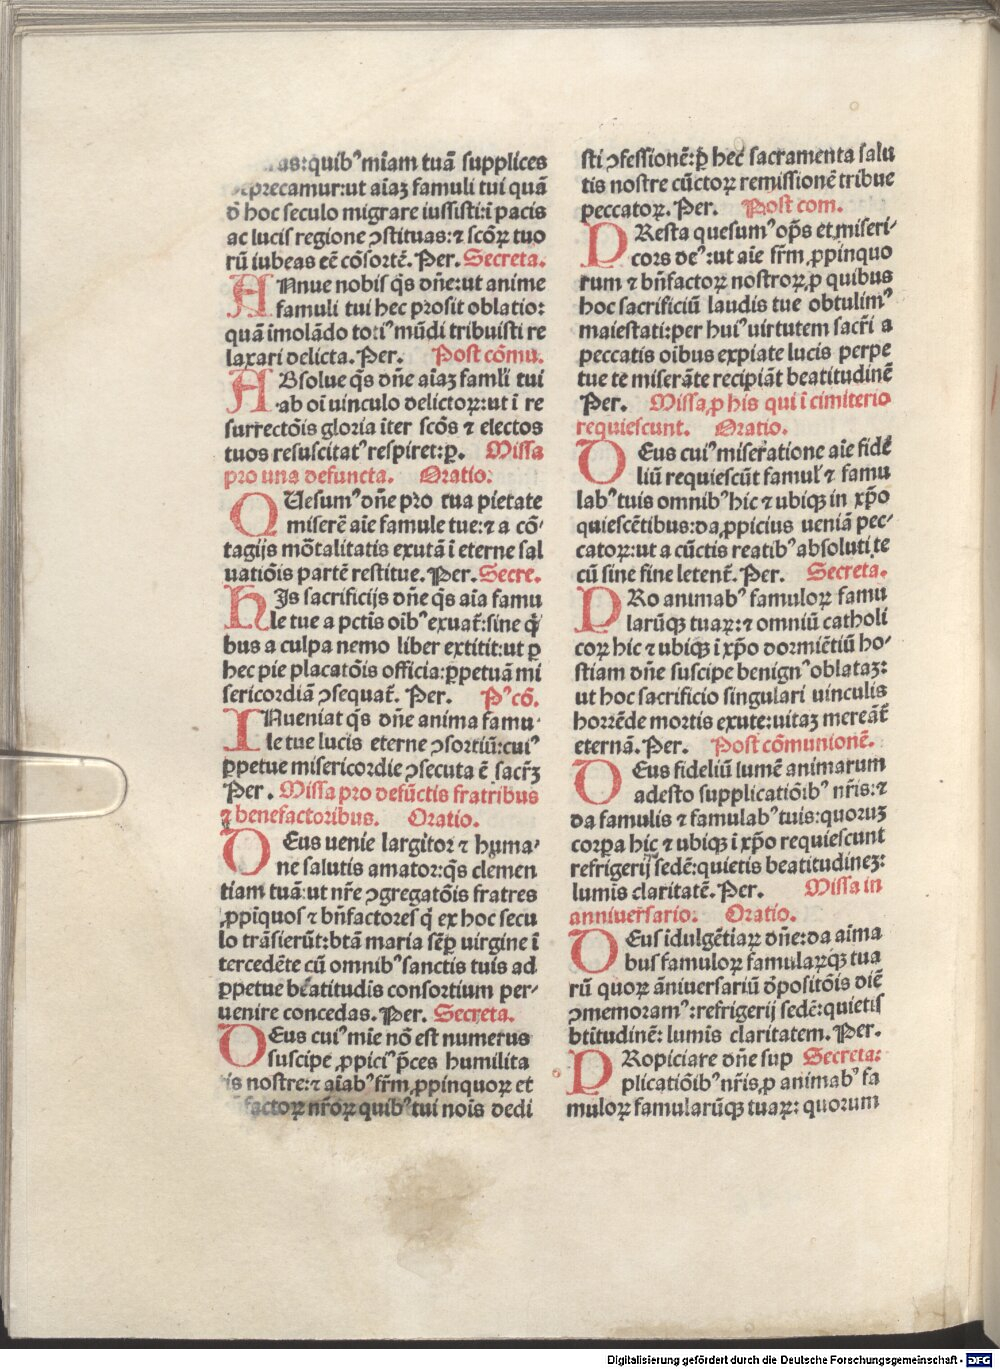 as:quibꝰ mīam tuā supplices
precamur:ut aīaꝫ famuli tui quā
ꝺ̄ hoc seculo migrare iussisti:ī pacis
ac lucis regione ↄstituas:⁊ scōꝝ tuo
rū iubeas eē cōsortē. Per. Secreta.
ANnue nobis q̄s dn̄e:ut anime
famuli tui hec prosit oblatio:
quā īmolādo totiꝰ mūdi tribuisti re
laxari delicta. Per. Post cōmu.
ABsolue q̄s dn̄e aīaꝫ famĺi tui
ab oī uinculo delictoꝝ:ut ī re
surrectōis gloria īter scōs ⁊ electos
tuos resuscitatꝰ respiret:ꝑ. Missa
pro una defuncta. Oratio:
QUesumꝰ dn̄e pro tua pietate
miserē aīe famule tue:⁊ a cō-
tagijs mōtalitatis exutā ī eterne sal
uatiōis partē restitue. Per. Secre.
HIs sacrificijs dn̄e q̄s aīa famu
le tue a pctīs oībꝰ exuat̄:sine q̄
bus a culpa nemo liber extitit:ut ꝑ
hec pie placatōis officia:ꝑpetuā mi
sericordiā ↄsequat̄. Per. Pꝰ cō.
INueniat q̄s dn̄e anima famu-
le tue lucis eterne ↄsortiū:cuiꝰ
ꝑpetue misericordie ↄsecuta ē sacr̄ꝫ
Per. Missa pro defūctis fratribus
⁊ benefactoribus. Oratio.
DEus uenie largitor ⁊ huma-
ne salutis amator:q̄s clemen
tiam tuā:ut nr̄e ↄgregatōis fratres
ꝓpīquos ⁊ bn̄factores q̄ ex hoc secu
lo trāsierūt:btā maria sēꝑ uirgine ī
tercedēte cū omnibꝰ sanctis tuis ad
ꝑpetue beatitudīs consortium per-
uenire concedas. Per. Secreta.
DEus cuiꝰ mīe nō est numerus
suscipe ꝓpiciꝰ p̄ces humilita
tis nostre:⁊ aīabꝰ fr̄m ꝓpinquoꝝ et
factoꝝ nr̄oꝝ quibꝰ tui noīs dedi
sti ↄfessionē:ꝑ hec sacramenta salu
tis nostre cūctoꝝ remissionē tribue
peccatoꝝ. Per. Post com.
PResta quesumꝰ op̄s et miseri-
cors deꝰ:ut aīe fr̄m ꝓpinquo
rum ⁊ bn̄factoꝝ nostroꝝ ꝓ quibus
hoc sacrificiū laudis tue obtulimꝰ
maiestati:per huiꝰ uirtutem sacr̄i a
peccatis oībus expiate lucis perpe
tue te miserāte recipiāt beatitudinē
Per. Missa ꝓ his qui ī cimiterio
requiescunt. Oratio.
DEus cuiꝰ miseratione aīe fide
liū requiescūt famuĺ ⁊ famu
labꝰ tuis omnibꝰ hic ⁊ ubiqꝫ in xp̄o
quiescētibus:da ꝓpicius ueniā pec-
catoꝝ:ut a cūctis reatibꝰ absoluti te
cū sine fine letent̄. Per. Secreta.
PRo animabꝰ famuloꝝ famu
larūqꝫ tuaꝝ:⁊ omniū catholi
coꝝ hic ⁊ ubiqꝫ ī xp̄o dormiētiū ho-
stiam dn̄e suscipe benignꝰ oblataꝫ:
ut hoc sacrificio singulari uinculis
horrēde mortis exute:uitaꝫ mereāt̄
eternā. Per. Post cōmunionē.
DEus fideliū lumē animarum
adesto supplicatiōibꝰ nr̄is:⁊
da famulis ⁊ famulabꝰ tuis:quoruꝫ
corꝑa hic ⁊ ubiqꝫ ī xp̄o requiescunt
refrigerij sedē:quietis beatitudineꝫ:
lumīs claritatē. Per. Missa in
anniuersario. Oratio.
DEus īdulgētiaꝝ dn̄e:da aīma
bus famuloꝝ famularꝝqꝫ tua
rū quoꝝ āniuersariū ꝺ̄positōis diē
ↄmemoramꝰ:refrigerij sedē:quietis
btitudinē: lumīs claritatem. Per.
PRopiciare dn̄e sup Secreta:
plicatiōibꝰ nr̄is ꝓ animabꝰ fa
muloꝝ famularūqꝫ tuaꝝ: quorum
Digitalisierung gefördert durch die Deutsche Forschungsgemeinschaft - DFG